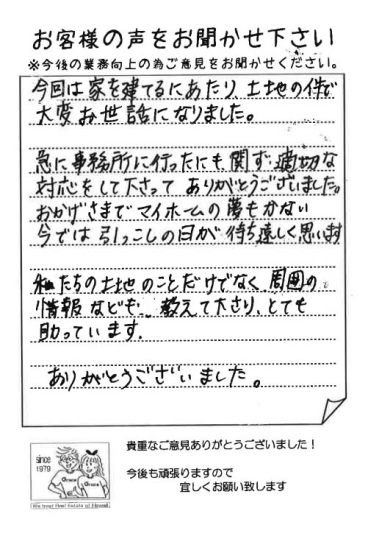 お客様の声をお聞かせ下さい
※今後の業務向上の為ご意見をお聞かせください。
今回は家を建てるにあたり、土地の件で
大変お世話になりました。
急に事務所に行ったにも関ず適切な
対応をして下さってありがとうございました。
おかげさまでマイホームの夢もかない
今では引っこしの日が待ち遠しく思います
私たちの土地のことだけでなく、周囲の
情報なども、教えて下さり、とても
助っています。
ありがとうございました。
since
1979
貴重なご意見ありがとうございました！
今後も頑張りますので
宜しくお願い致します